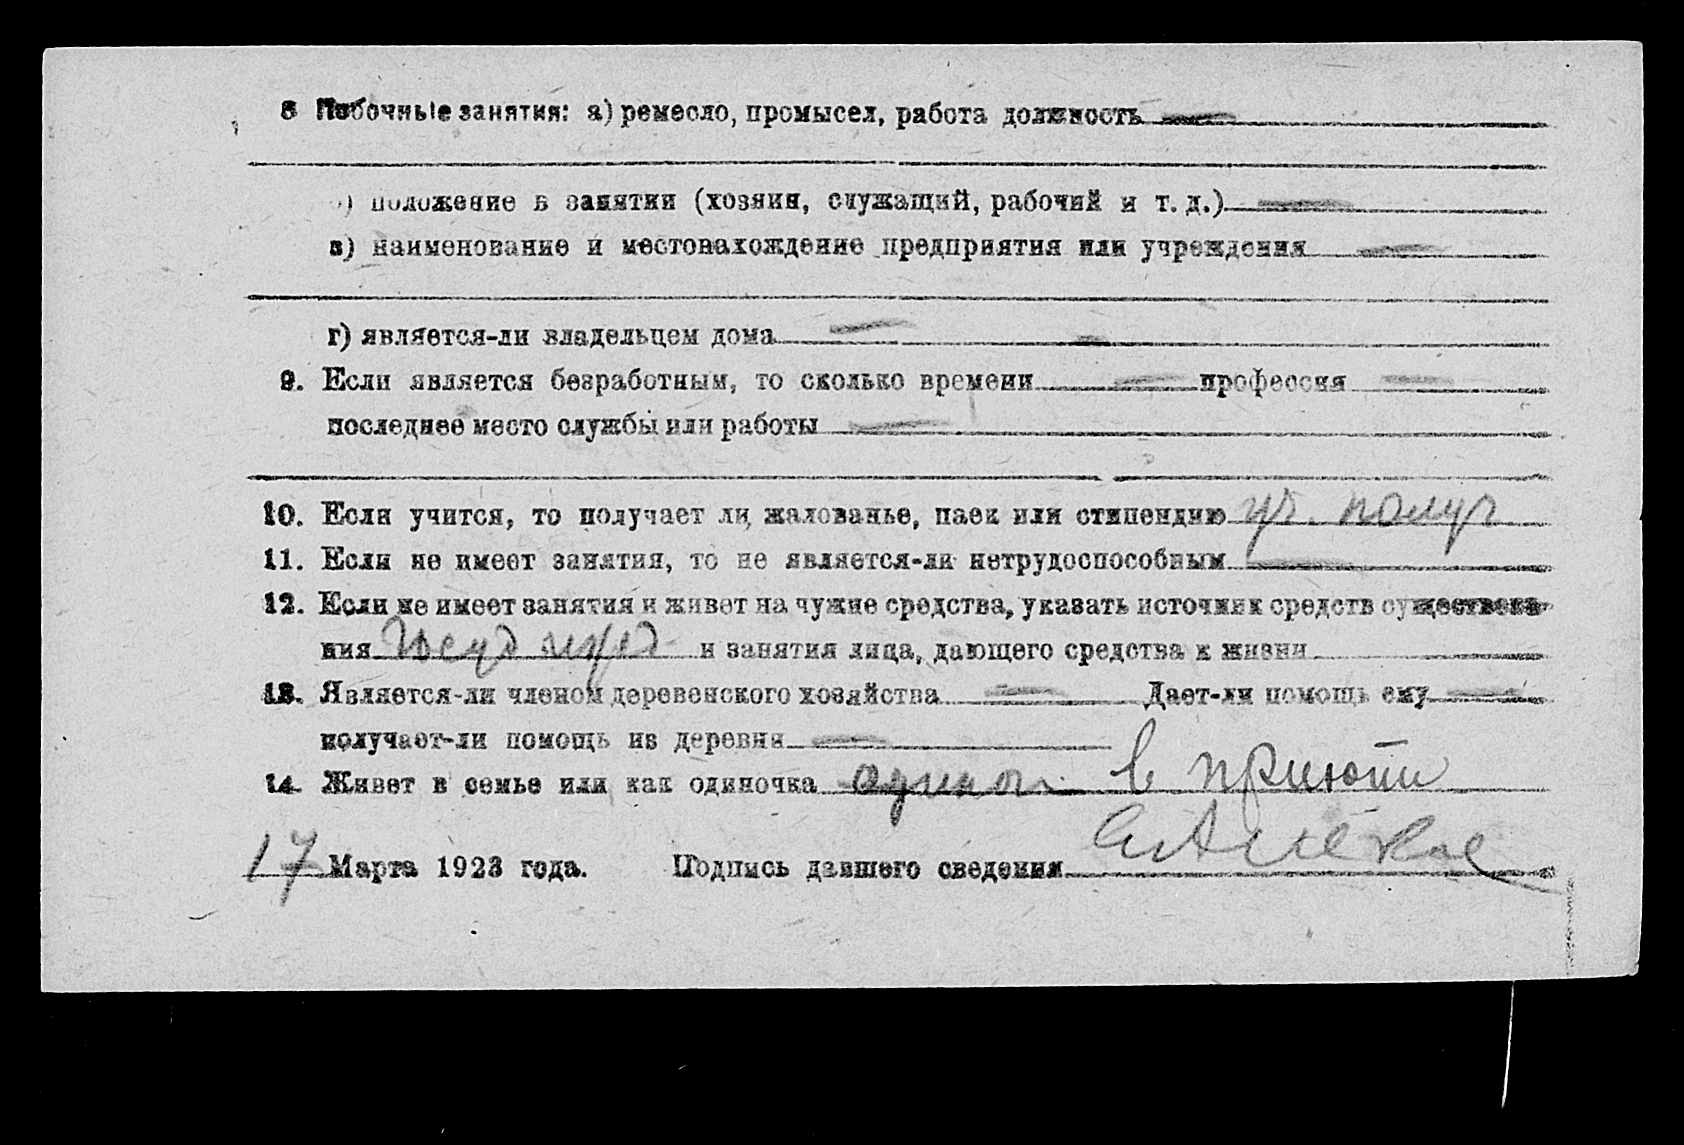 8 Побочные занятия: а) ремесло, промысел, работа должность
) положение в занятии (хозяин, служащий, рабочий и т. д.)
в) наименование и местонахождение предприятия или учреждения
г) является-ли владельцем дома
9. Если является безработным, то сколько времени профессия
последнее место службы или работы
10. Если учится, то получает ли жалованье, паек или стипендию
11. Если не имеет занятия, то не является-ли нетрудоспособным
12. Если не имеет занятия и живет на чужие средства, указать источник средств существова-
ния и занятия лица, дающего средства к жизни
13. Является-ли членом деревенского хозяйства Дает-ли помощь ему
получает-ли помощь из деревни
14. Живет в семье или как одиночка одиноч. в приюти
17 Марта 1923 года. Подпись давшего сведения